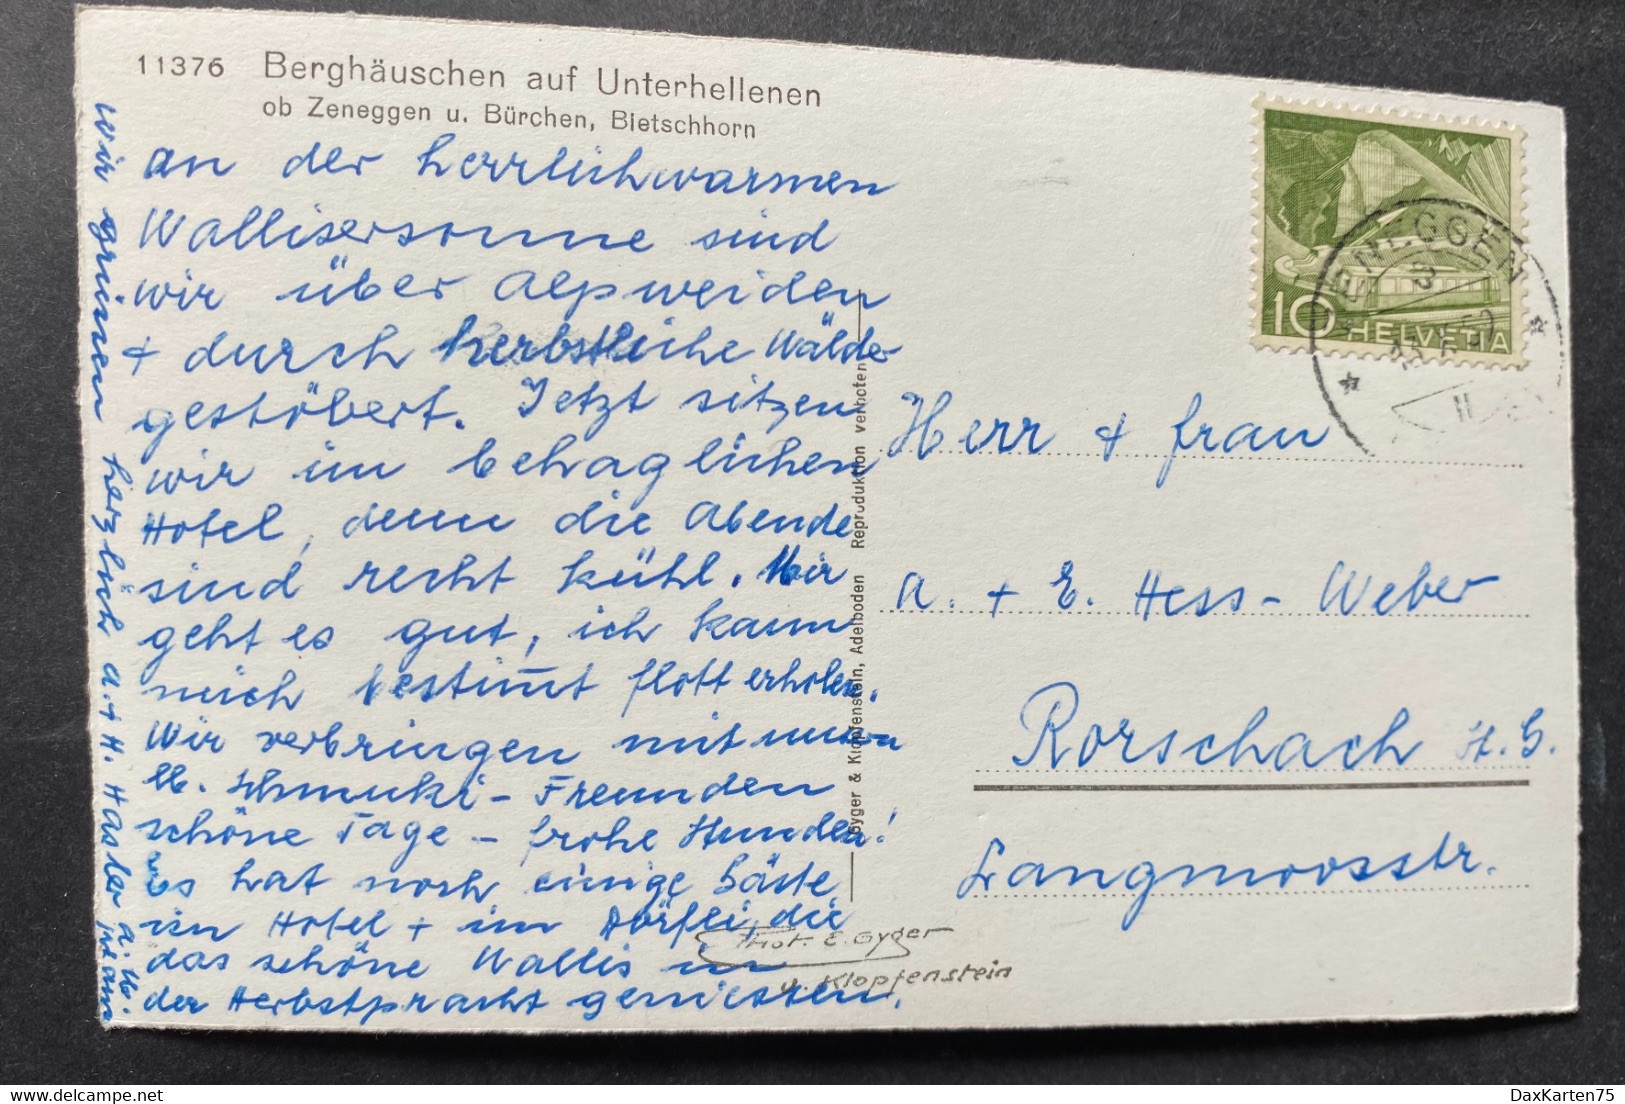 11376 Berghäuschen auf Unterhellenen
ob Zeneggen u. Bürchen, Bietschhorn
an der herrlichwarmen
Wallisersonne sind
wir über Alpweiden
+ durch herbstliche Wälder
gestöbert. Jetzt sitzen
wir im behaglichen
Hotel, denn die Abende
sind recht kühl. Mir
geht es gut, ich kann
mich bestimt flott erholen.
Wir verbringen mit unsern
lb. Schmuki-Freunden
schöne Tage - frohe Stunden!
Es hat noch einige Gäste
im Hotel + im Dörfli, die
das schöne Wallis in
der Herbstpracht geniessen.
Wir grüssen herzlich A. + H. Hasler
Gyger & Klopfenstein, Adelboden Reproduktion verboten
Phot. E. Gyger
u. Klopfenstein
ZENEGGEN
10 HELVETIA
Herr + Frau
A. + E. Hess-Weber
Rorschach
Langmoosstr.
DaxKarten75